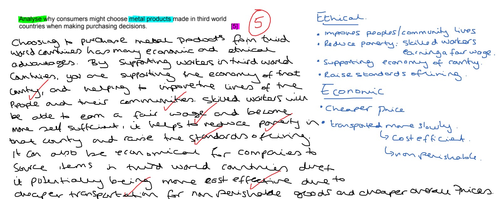 Analyse why consumers might choose metal products made in third world
countries when making purchasing decisions. [5]
5
Choosing to purchase metal Products from third
world countries has many economic and ethical
advantages. By supporting workers in third world
Countries, you are supporting the economy of that
country and helping to improve the lives of the
People and their communities skilled workers will
be able to earn a fair wage and become
more self sufficient, it helps to reduce poverty in
that country and raise the standards of living
It can also be economical for companies to
source items in third world countries due to
it potentially being more cost effective due to
cheaper transportation for non perishable goods and cheaper overall Prices
Ethical
• Improves peoples/community lives
• Reduce poverty: skilled workers
earning a fair wage.
• Supporting economy of country
• Raise standards of living
Economic
• Cheaper price
• transported more slowly.
↳ cost efficient.
↳ non perishable.